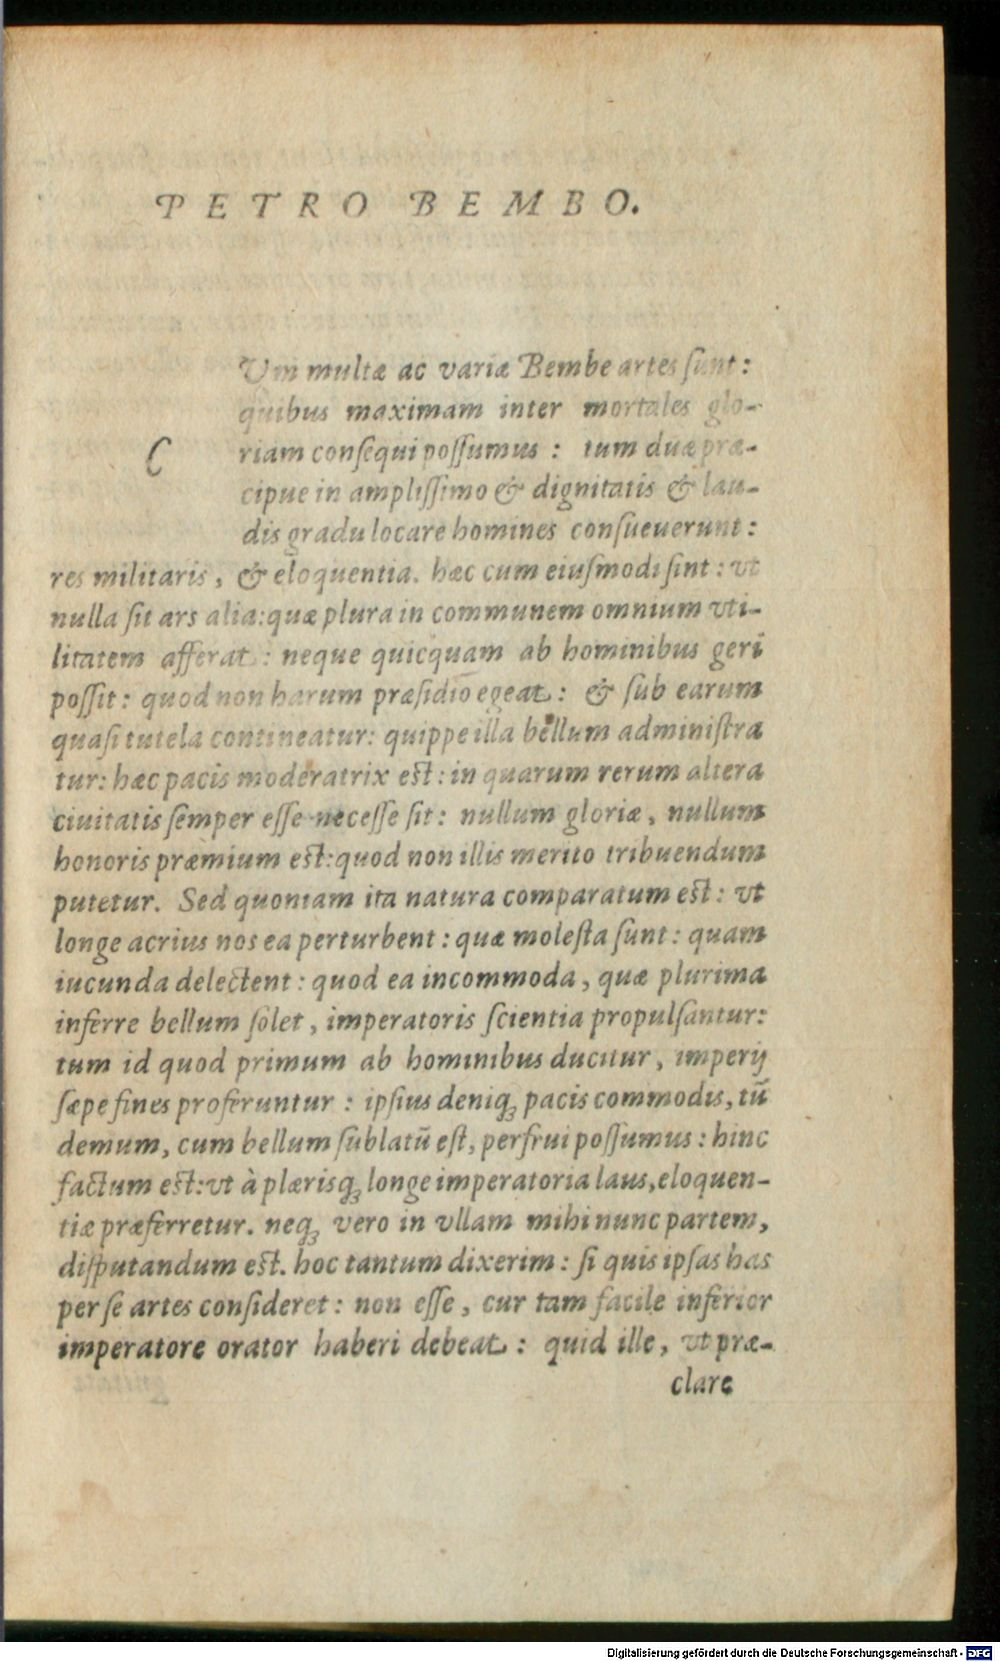 PETRO BEMBO.
Vm multæ ac variæ Bembe artes ſunt:
quibus maximam inter mortales glo-
C
riam conſequi poſſumus: tum duæ præ-
cipue in ampliſſimo & dignitatis & lau-
dis gradu locare homines conſueuerunt:
res militaris, & eloquentia. hæc cum eiuſmodi ſint: vt
nulla ſit ars alia: quæ plura in communem omnium vti-
litatem afferat: neque quicquam ab hominibus geri
poſſit: quod non harum præſidio egeat: & ſub earum
quaſi tutela contineatur: quippe illa bellum adminiſtra
tur: hæc pacis moderatrix eſt: in quarum rerum altera
ciuitatis ſemper eſſe neceſſe ſit: nullum gloriæ, nullum
honoris præmium eſt: quod non illis merito tribuendum
putetur. Sed quoniam ita natura comparatum eſt: vt
longe acrius nos ea perturbent: quæ moleſta ſunt: quam
iucunda delectent: quod ea incommoda, quæ plurima
inferre bellum ſolet, imperatoris ſcientia propulſantur:
tum id quod primum ab hominibus ducitur, imperij
ſæpe fines proferuntur: ipſius deniq; pacis commodis, tū
demum, cum bellum ſublatū eſt, perfrui poſſumus: hinc
factum eſt: vt à plæriſq; longe imperatoria laus, eloquen-
tiæ præferretur. neq; vero in vllam mihi nunc partem,
diſputandum eſt. hoc tantum dixerim: ſi quis ipſas has
per ſe artes conſideret: non eſſe, cur tam facile inferior
imperatore orator haberi debeat: quid ille, vt præ-
clare
Digitalisierung gefördert durch die Deutsche Forschungsgemeinschaft - DFG